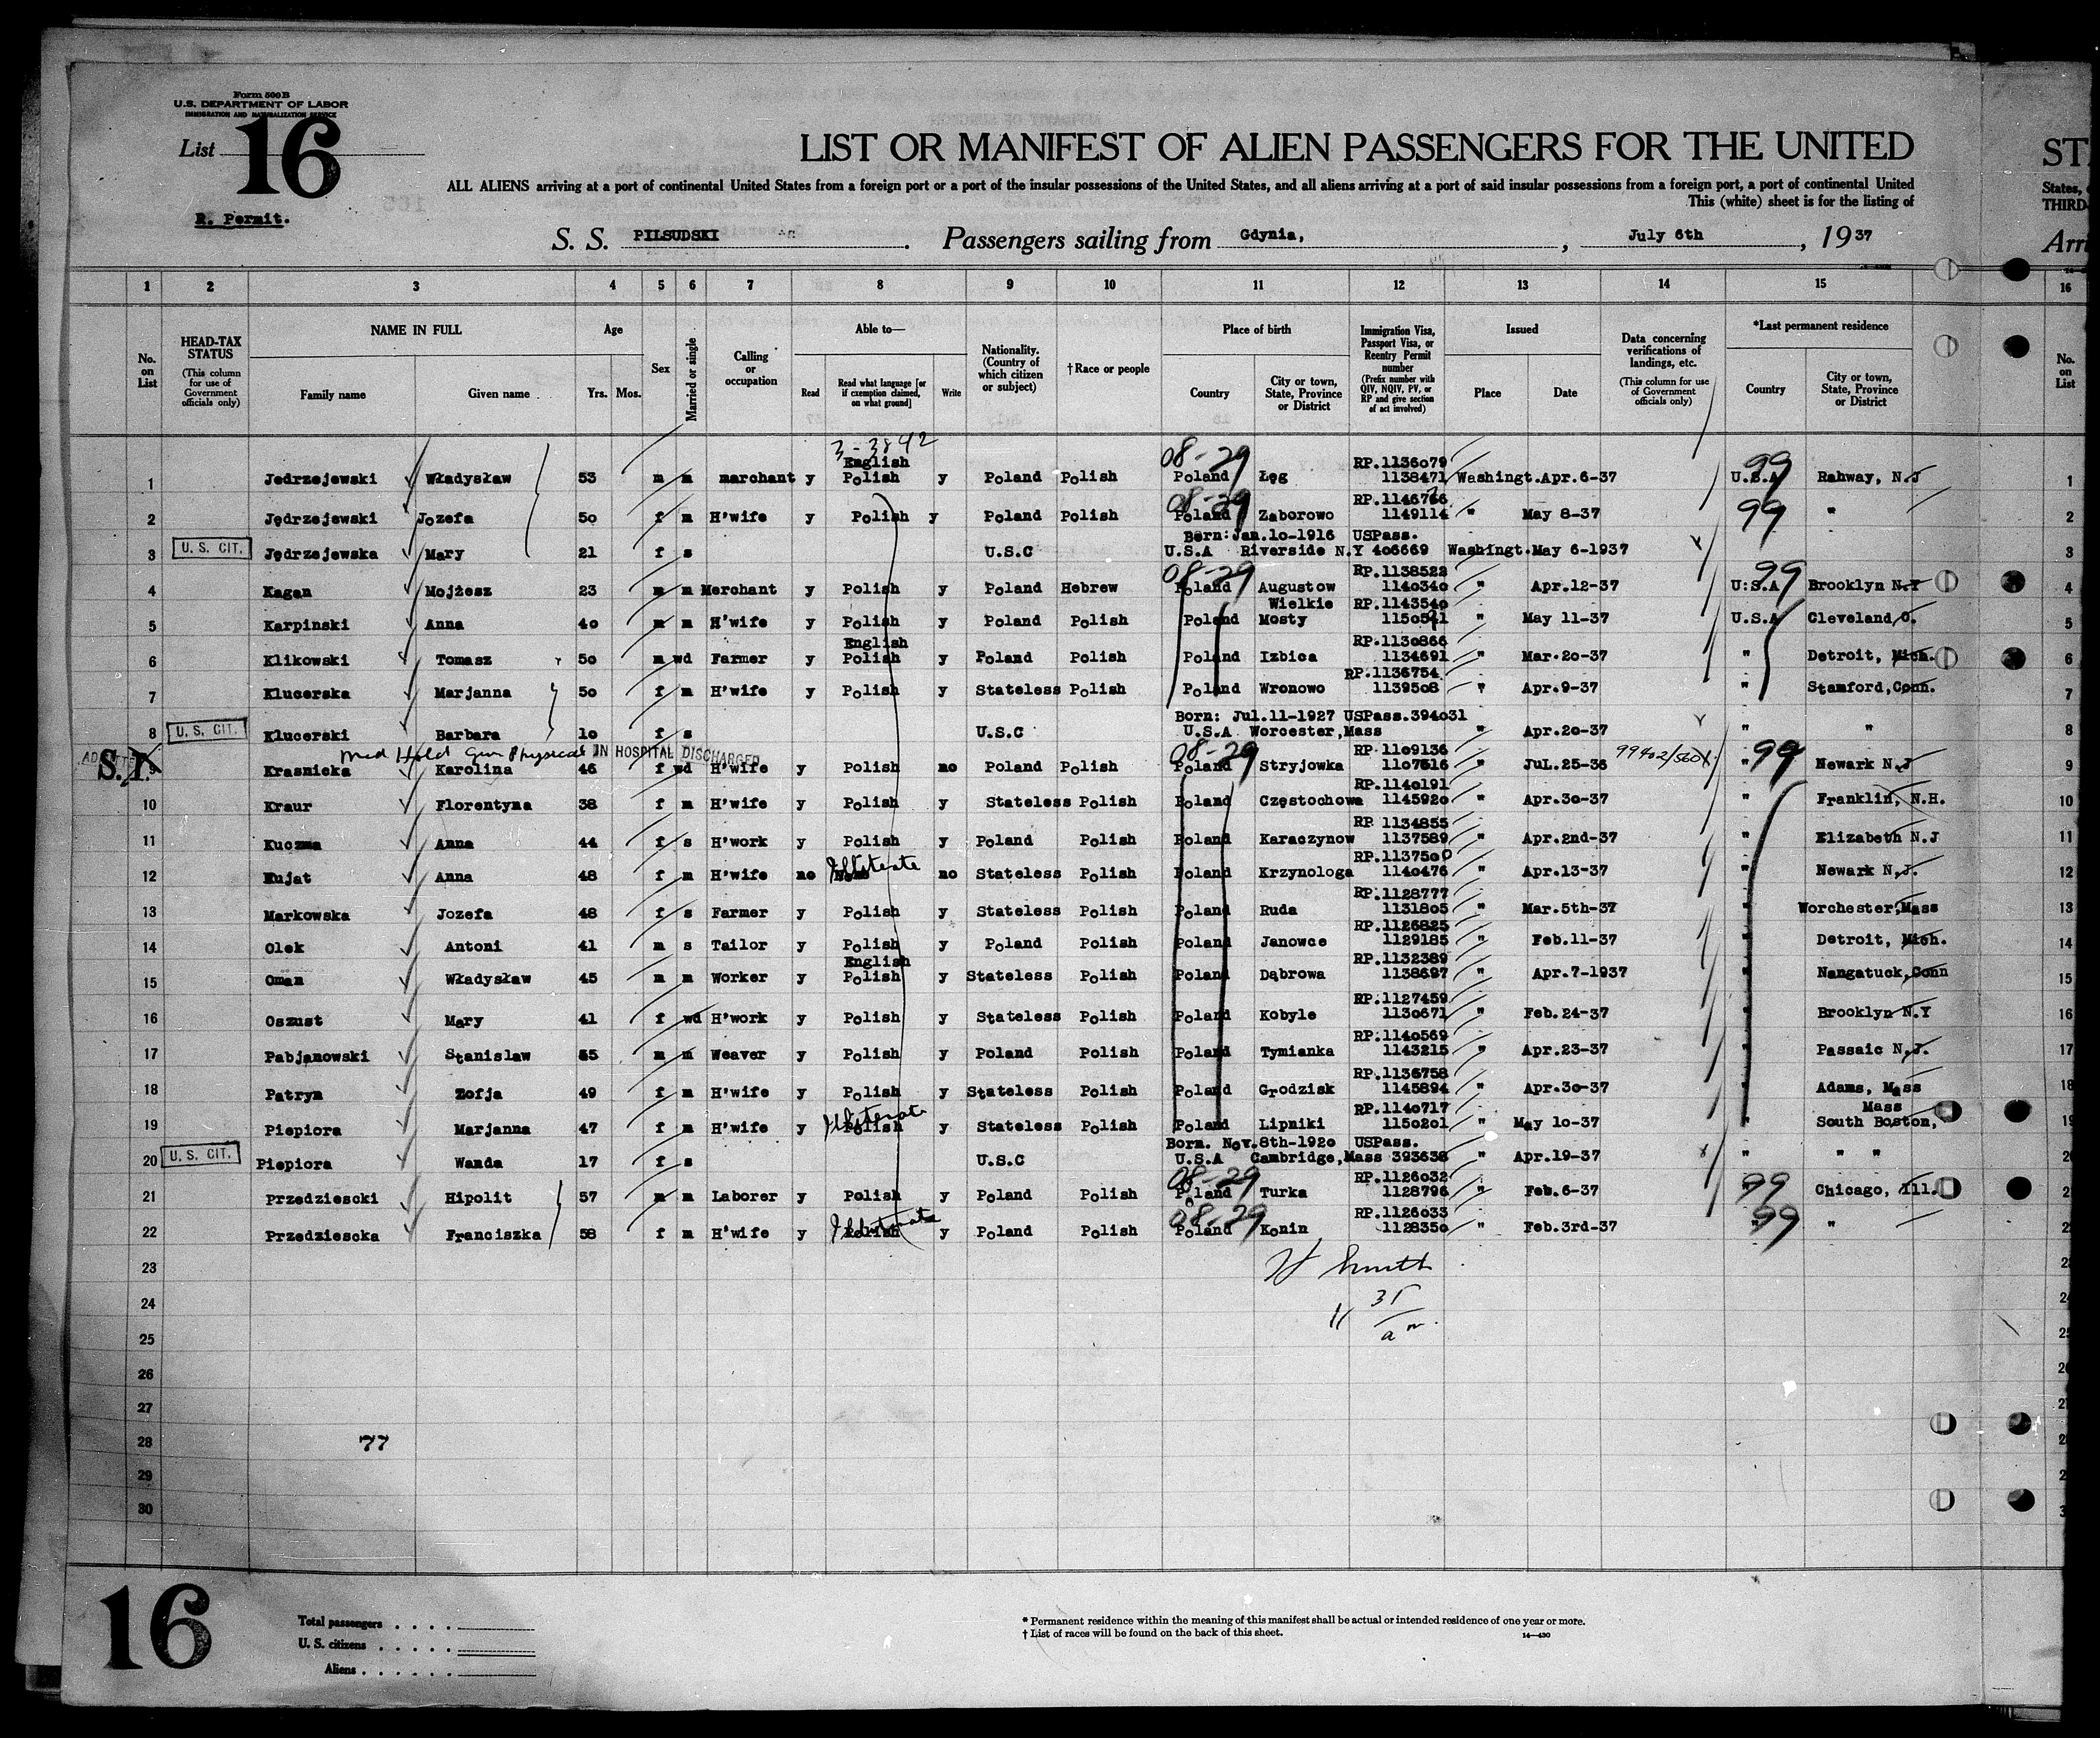 Form 500 B
U.S. DEPARTMENT OF LABOR
IMMIGRATION AND NATURALIZATION SERVICE
List 16
R. Permit.
LIST OR MANIFEST OF ALIEN PASSENGERS FOR THE UNITED ST
ALL ALIENS arriving at a port of continental United States from a foreign port or a port of the insular possessions of the United States, and all aliens arriving at a port of said insular possessions from a foreign port, a port of continental United States,
This (white) sheet is for the listing of THIRD
S. S. PILSUDSKI . Passengers sailing from Gdynia, , July 6th , 1937 Arri
1 2 3 4 5 6 7 8 9 10 11 12 13 14 15 16
No. on List
HEAD-TAX STATUS (This column for use of Government officials only)
NAME IN FULL Family name Given name
Age Yrs. Mos.
Sex
Married or single
Calling or occupation
Able to— Read Read what language [or if exemption claimed, on what ground] Write
Nationality. (Country of which citizen or subject)
†Race or people
Place of birth Country City or town, State, Province or District
Immigration Visa, Passport Visa, or Reentry Permit number (Prefix number with QIV, NQIV, PV, or RP and give section of act involved)
Issued Place Date
Data concerning verifications of landings, etc. (This column for use of Government officials only)
*Last permanent residence Country City or town, State, Province or District
No. on List
3-3842
English 08-29 RP.1136079 99
1 Jedrzejewski Władysław 53 m m marchant y Polish y Poland Polish Poland Łęg 1138471 Washingt. Apr.6-37 U.S.A Rahway, N.J 1
08-29 RP.1146766
2 Jędrzejewski Jozefa 50 f m H'wife y Polish y Poland Polish Poland Zaborowo 1149114 " May 8-37 99 " 2
Born: Jan.10-1916 USPass.
3 U. S. CIT. Jędrzejewska Mary 21 f s U.S.C U.S.A Riverside N.Y 406669 Washingt. May 6-1937 3
08-29 RP.1138522 99
4 Kagan Mojżesz 23 m m Merchant y Polish y Poland Hebrew Poland Augustow 1140340 " Apr.12-37 U.S.A Brooklyn N.Y 4
Wielkie RP.1143540
5 Karpinski Anna 40 m m H'wife y Polish y Poland Polish Poland Mosty 1150541 " May 11-37 U.S.A Cleveland,O. 5
English RP.1130866
6 Klikowski Tomasz 50 m wd Farmer y Polish y Poland Polish Poland Izbica 1134691 " Mar.20-37 " Detroit, Mich. 6
RP.1136754
7 Klucerska Marjanna 50 f m H'wife y Polish y Stateless Polish Poland Wronowo 1139508 " Apr.9-37 " Stamford,Conn. 7
Born: Jul.11-1927 USPass.394031
8 U. S. CIT. Klucerski Barbara 10 f s U.S.C U.S.A Worcester,Mass " Apr.20-37 " " 8
S.I. Med Hold Gen Physical IN HOSPITAL DISCHARGED 08-29 RP 1109136 99402/560 99
9 Krasnicka Karolina 46 f wd H'wife y Polish no Poland Polish Poland Stryjowka 1107616 " JuL.25-36 " Newark N.J 9
RP.1140191
10 Kraur Florentyna 38 f m H'wife y Polish y Stateless Polish Poland Częstochowa 1145920 " Apr.30-37 " Franklin, N.H. 10
RP 1134855
11 Kuczma Anna 44 f s H'work y Polish y Poland Polish Poland Karaczynow 1137589 " Apr.2nd-37 " Elizabeth N.J 11
Illiterate RP.1137500
12 Kujat Anna 48 f m H'wife no no Stateless Polish Poland Krzynologa 1140476 " Apr.13-37 " Newark N.J. 12
RP.1128777
13 Markowska Jozefa 48 f s Farmer y Polish y Stateless Polish Poland Ruda 1131805 " Mar.5th-37 " Worchester,Mass 13
RP.1126825
14 Olek Antoni 41 m s Tailor y Polish y Poland Polish Poland Janowce 1129185 " Feb.11-37 " Detroit, Mich. 14
English RP.1132389
15 Oman Władysław 45 m m Worker y Polish y Stateless Polish Poland Dąbrowa 1138697 " Apr.7-1937 " Nangatuck,Conn 15
RP.1127459
16 Oszust Mary 41 f wd H'work y Polish y Stateless Polish Poland Kobyle 1130671 " Feb.24-37 " Brooklyn N.Y 16
RP.1140569
17 Pabjanowski Stanislaw 55 m m Weaver y Polish y Poland Polish Poland Tymianka 1143215 " Apr.23-37 " Passaic N.J. 17
RP.1136758
18 Patryn Zofja 49 f m H'wife y Polish y Stateless Polish Poland Grodzisk 1145894 " Apr.30-37 " Adams, Mass 18
Illiterate RP.1140717 Mass
19 Piepiora Marjanna 47 f m H'wife y Polish y Stateless Polish Poland Lipniki 1150201 " May 10-37 " South Boston, 19
Born. Nov.8th-1920 USPass.
20 U. S. CIT. Piepiora Wanda 17 f s U.S.C U.S.A Cambridge,Mass 393638 " Apr.19-37 " " " 20
08-29 RP.1126032 99
21 Przedziescki Hipolit 57 m m Laborer y Polish y Poland Polish Poland Turka 1128796 " Feb.6-37 " Chicago, Ill. 2
Illiterate 08-29 RP.1126033 99
22 Przedziescka Franciszka 58 f m H'wife y Polish y Poland Polish Poland Konin 1128350 " Feb.3rd-37 " " 2
23 H Smith 2
24 31 24
25 11 am 25
26 2
27 2
28 77 2
29 2
30 3
16
Total passengers . . . .
U. S. citizens . . . . .
Aliens . . . . . .
* Permanent residence within the meaning of this manifest shall be actual or intended residence of one year or more.
† List of races will be found on the back of this sheet.
14—430